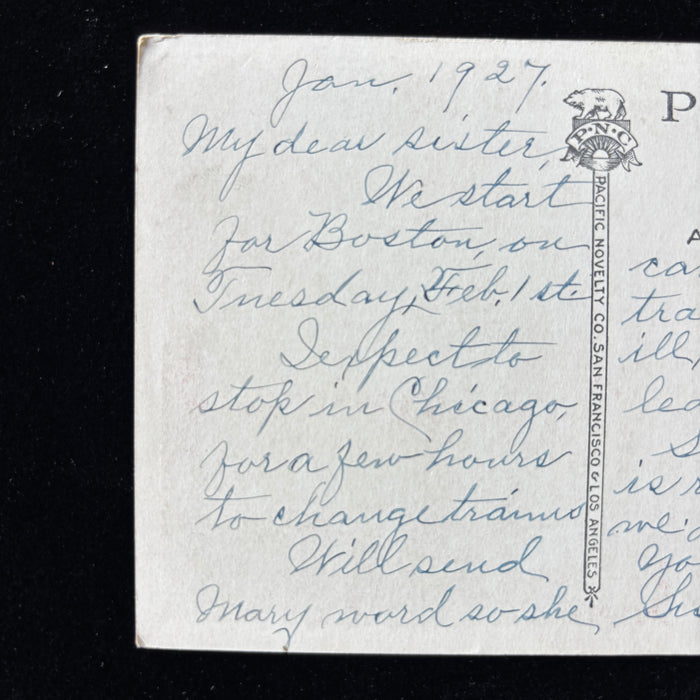 Jan. 1927.
My dear sister,
We start
for Boston, on
Tuesday, Feb. 1st.
I expect to
stop in Chicago,
for a few hours
to change trains
Will send
Mary word so she
P.N.C
PACIFIC NOVELTY CO. SAN FRANCISCO & LOS ANGELES
P
A
ca
tra
ill,
lea
S
is
we
yo